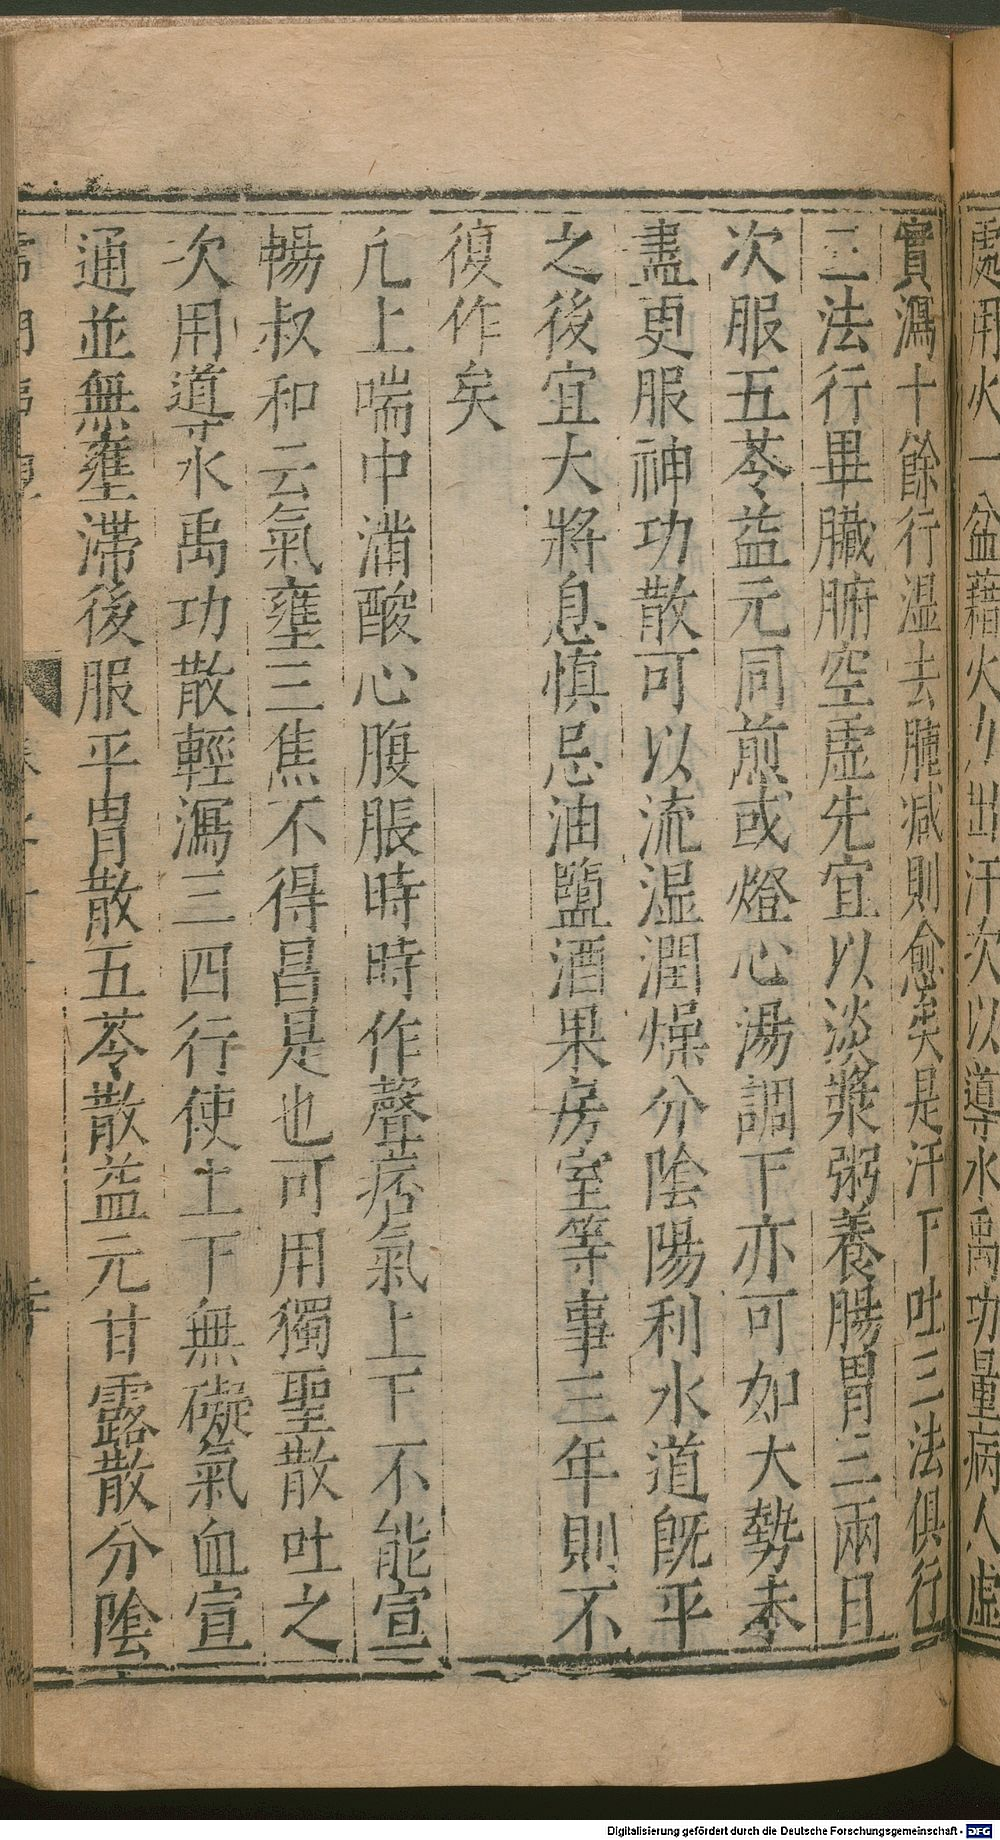 處用火一盆藉火力出汗次以導水禹功量病人虛
實瀉十餘行湿去腫减則愈矣是汗下吐三法俱行
三法行畢臟腑空虛先宜以淡漿粥養腸胃三兩日
次服五苓益元同煎或燈心湯調下亦可如大勢未
盡更服神功散可以流湿潤燥分陰陽利水道既平
之後宜大將息慎忌油鹽酒果房室等事三年則不
復作矣
凢上喘中滿酸心腹脹時時作聲痞氣上下不能宣
暢叔和云氣壅三焦不得昌是也可用獨聖散吐之
次用導水禹功散輕瀉三四行使上下無礙氣血宣
通並無壅滯後服平胃散五苓散益元甘露散分陰
Digitalisierung gefördert durch die Deutsche Forschungsgemeinschaft - DFG